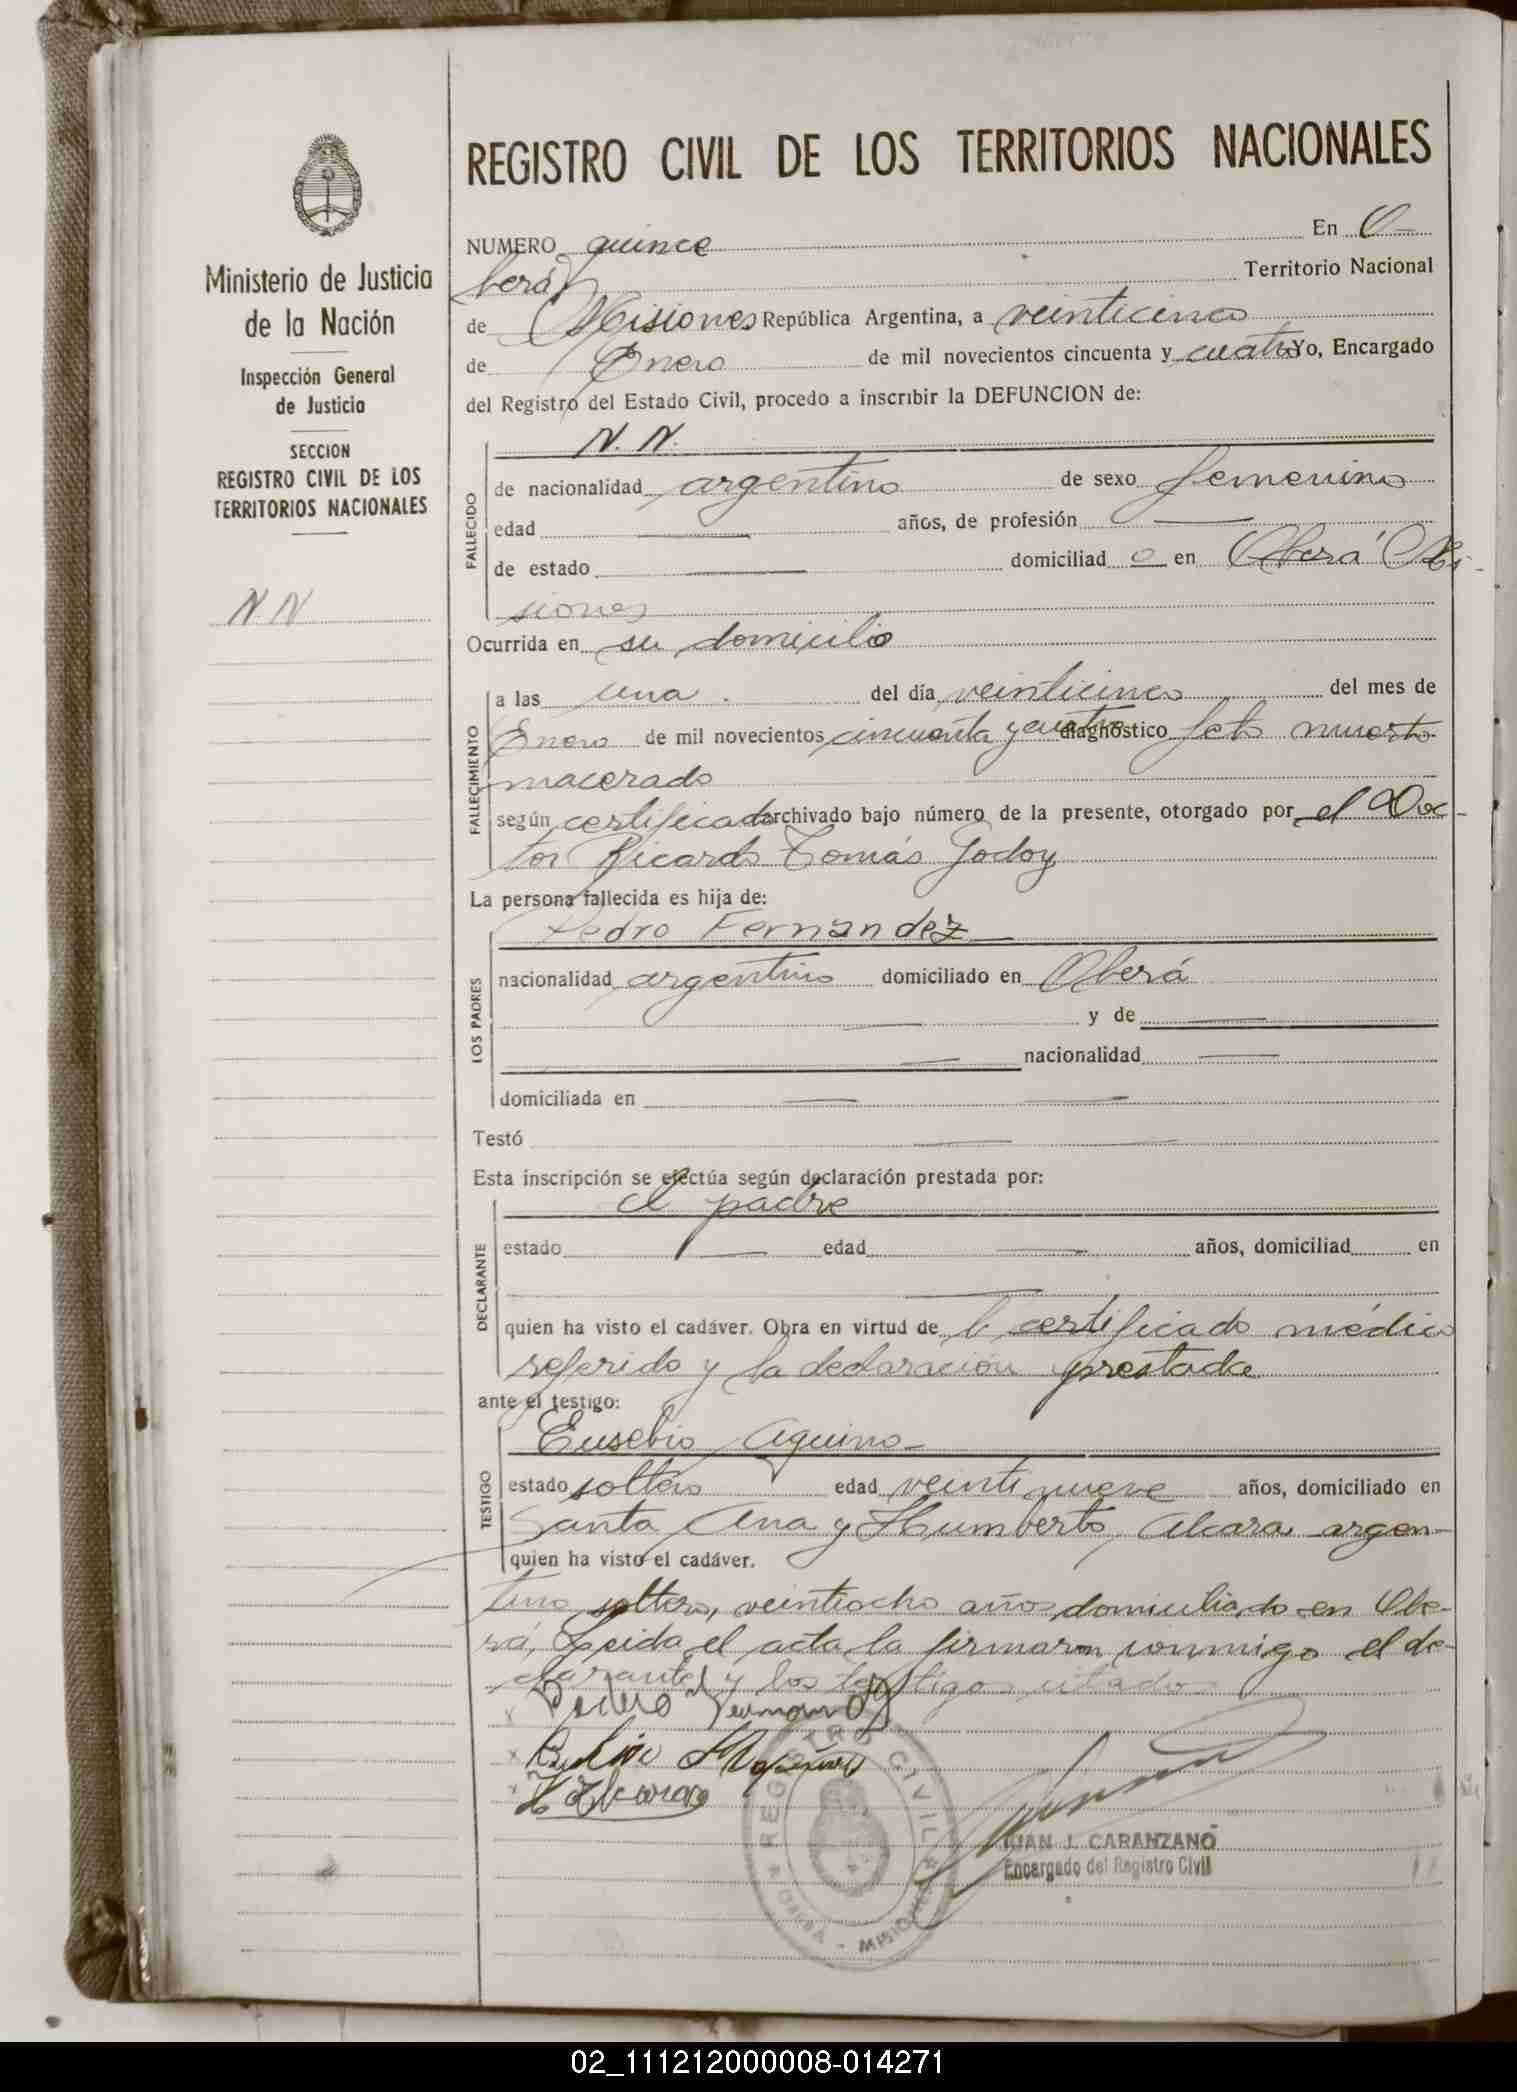 REGISTRO CIVIL DE LOS TERRITORIOS NACIONALES
Ministerio de Justicia
de la Nación
Inspección General
de Justicia
SECCION
REGISTRO CIVIL DE LOS
TERRITORIOS NACIONALES
N. N
NUMERO quince En O-
berá Territorio Nacional
de Misiones República Argentina, a veinticinco
de Enero de mil novecientos cincuenta y cuatro Yo, Encargado
del Registro del Estado Civil, procedo a inscribir la DEFUNCION de:
N. N.
FALLECIDO
de nacionalidad argentino de sexo femenino
edad — años, de profesión —
de estado — domiciliad o en Oberá Mi-
siones
Ocurrida en su domicilio
FALLECIMIENTO
a las una. del día veinticinco del mes de
Enero de mil novecientos cincuenta y cuatro diagnóstico feto muerto
macerado
según certificado archivado bajo número de la presente, otorgado por el Doc-
tor Ricardo Tomás Godoy
La persona fallecida es hija de:
LOS PADRES
Pedro Fernandez
nacionalidad argentino domiciliado en Oberá
— y de —
— nacionalidad —
domiciliada en — —
Testó — —
Esta inscripción se efectúa según declaración prestada por:
DECLARANTE
el padre
estado — edad — años, domiciliad en
—
quien ha visto el cadáver. Obra en virtud de l certificado médico
referido y la declaración prestada
ante el testigo:
TESTIGO
Eusebio Aquino
estado soltero edad veintinueve años, domiciliado en
Santa Ana y Humberto Alcara argen-
quien ha visto el cadáver.
tino soltero, veintiocho años domiciliado en Obe-
rá, Leida el acta la firmaron conmigo el de-
clarante y los testigos citados
Pedro Fernandez
REGISTRO CIVIL
MISIONES
JUAN J. CARANZANO
Encargado del Registro Civil
02_111212000008-014271